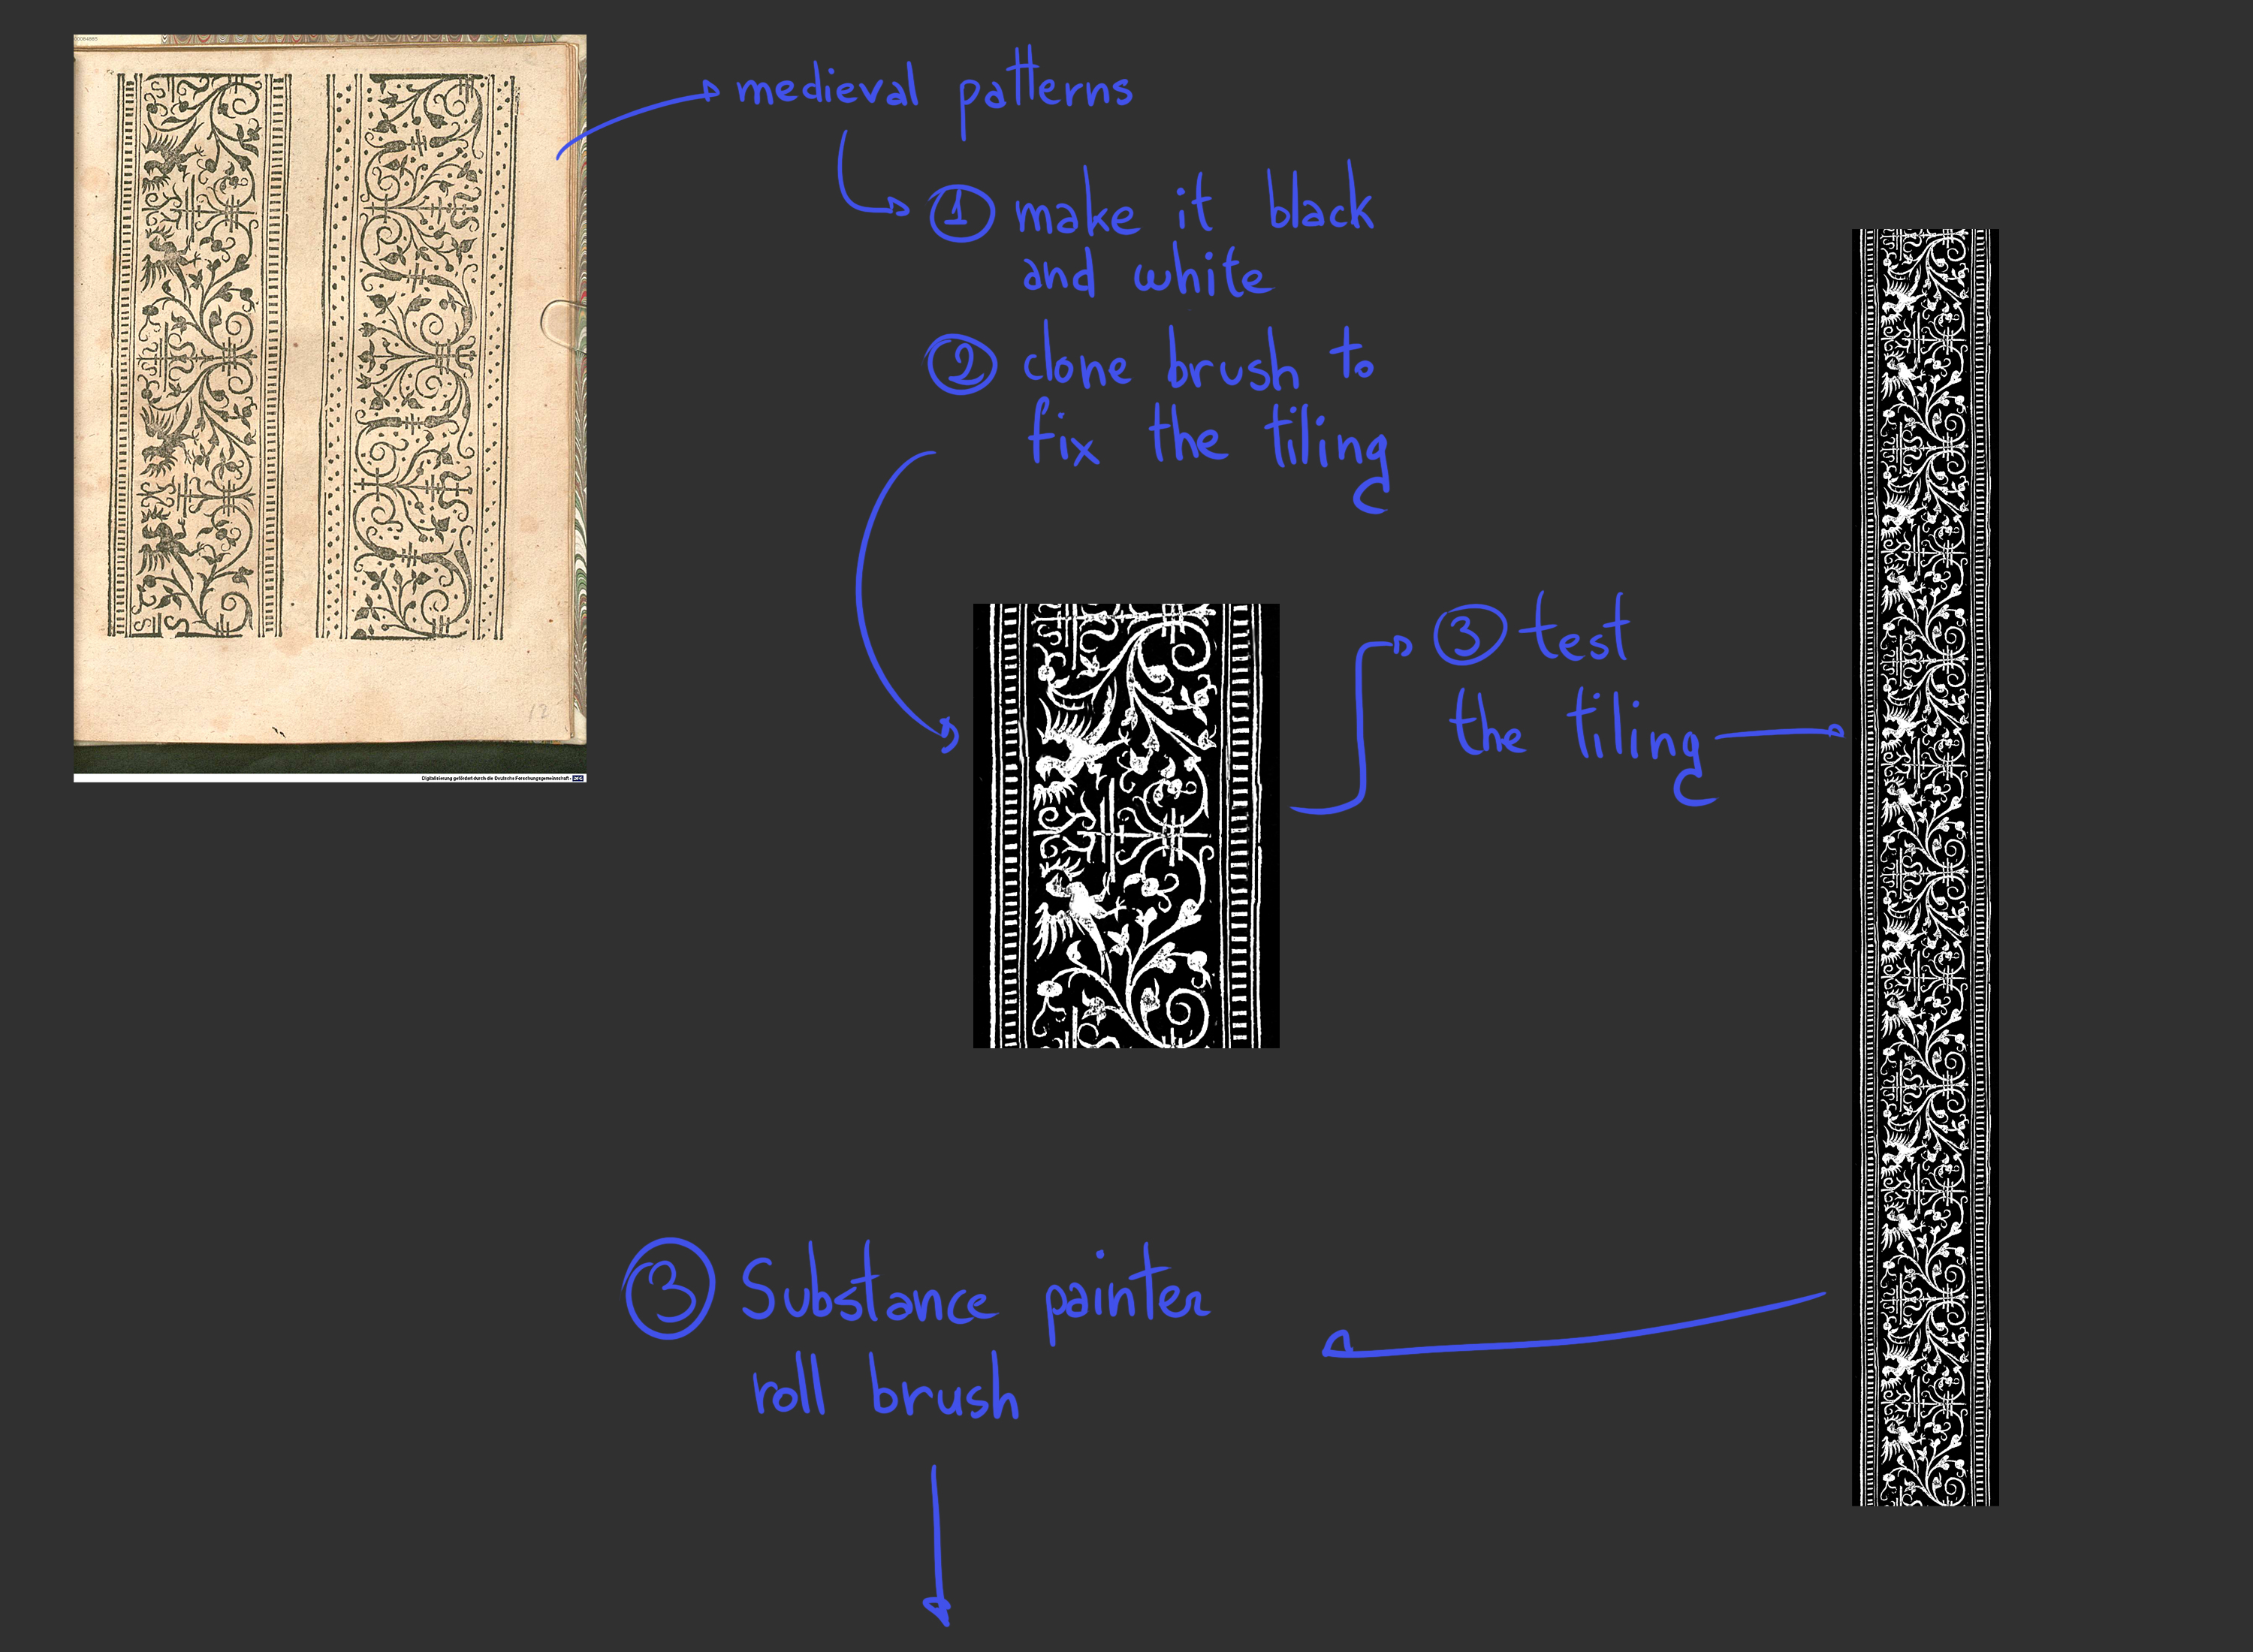 00084665
medieval patterns
1 make it black
and white
2 clone brush to
fix the tiling
12
Digitalisierung gefördert durch die Deutsche Forschungsgemeinschaft - DFG
3 test
the tiling
3 Substance painter
roll brush